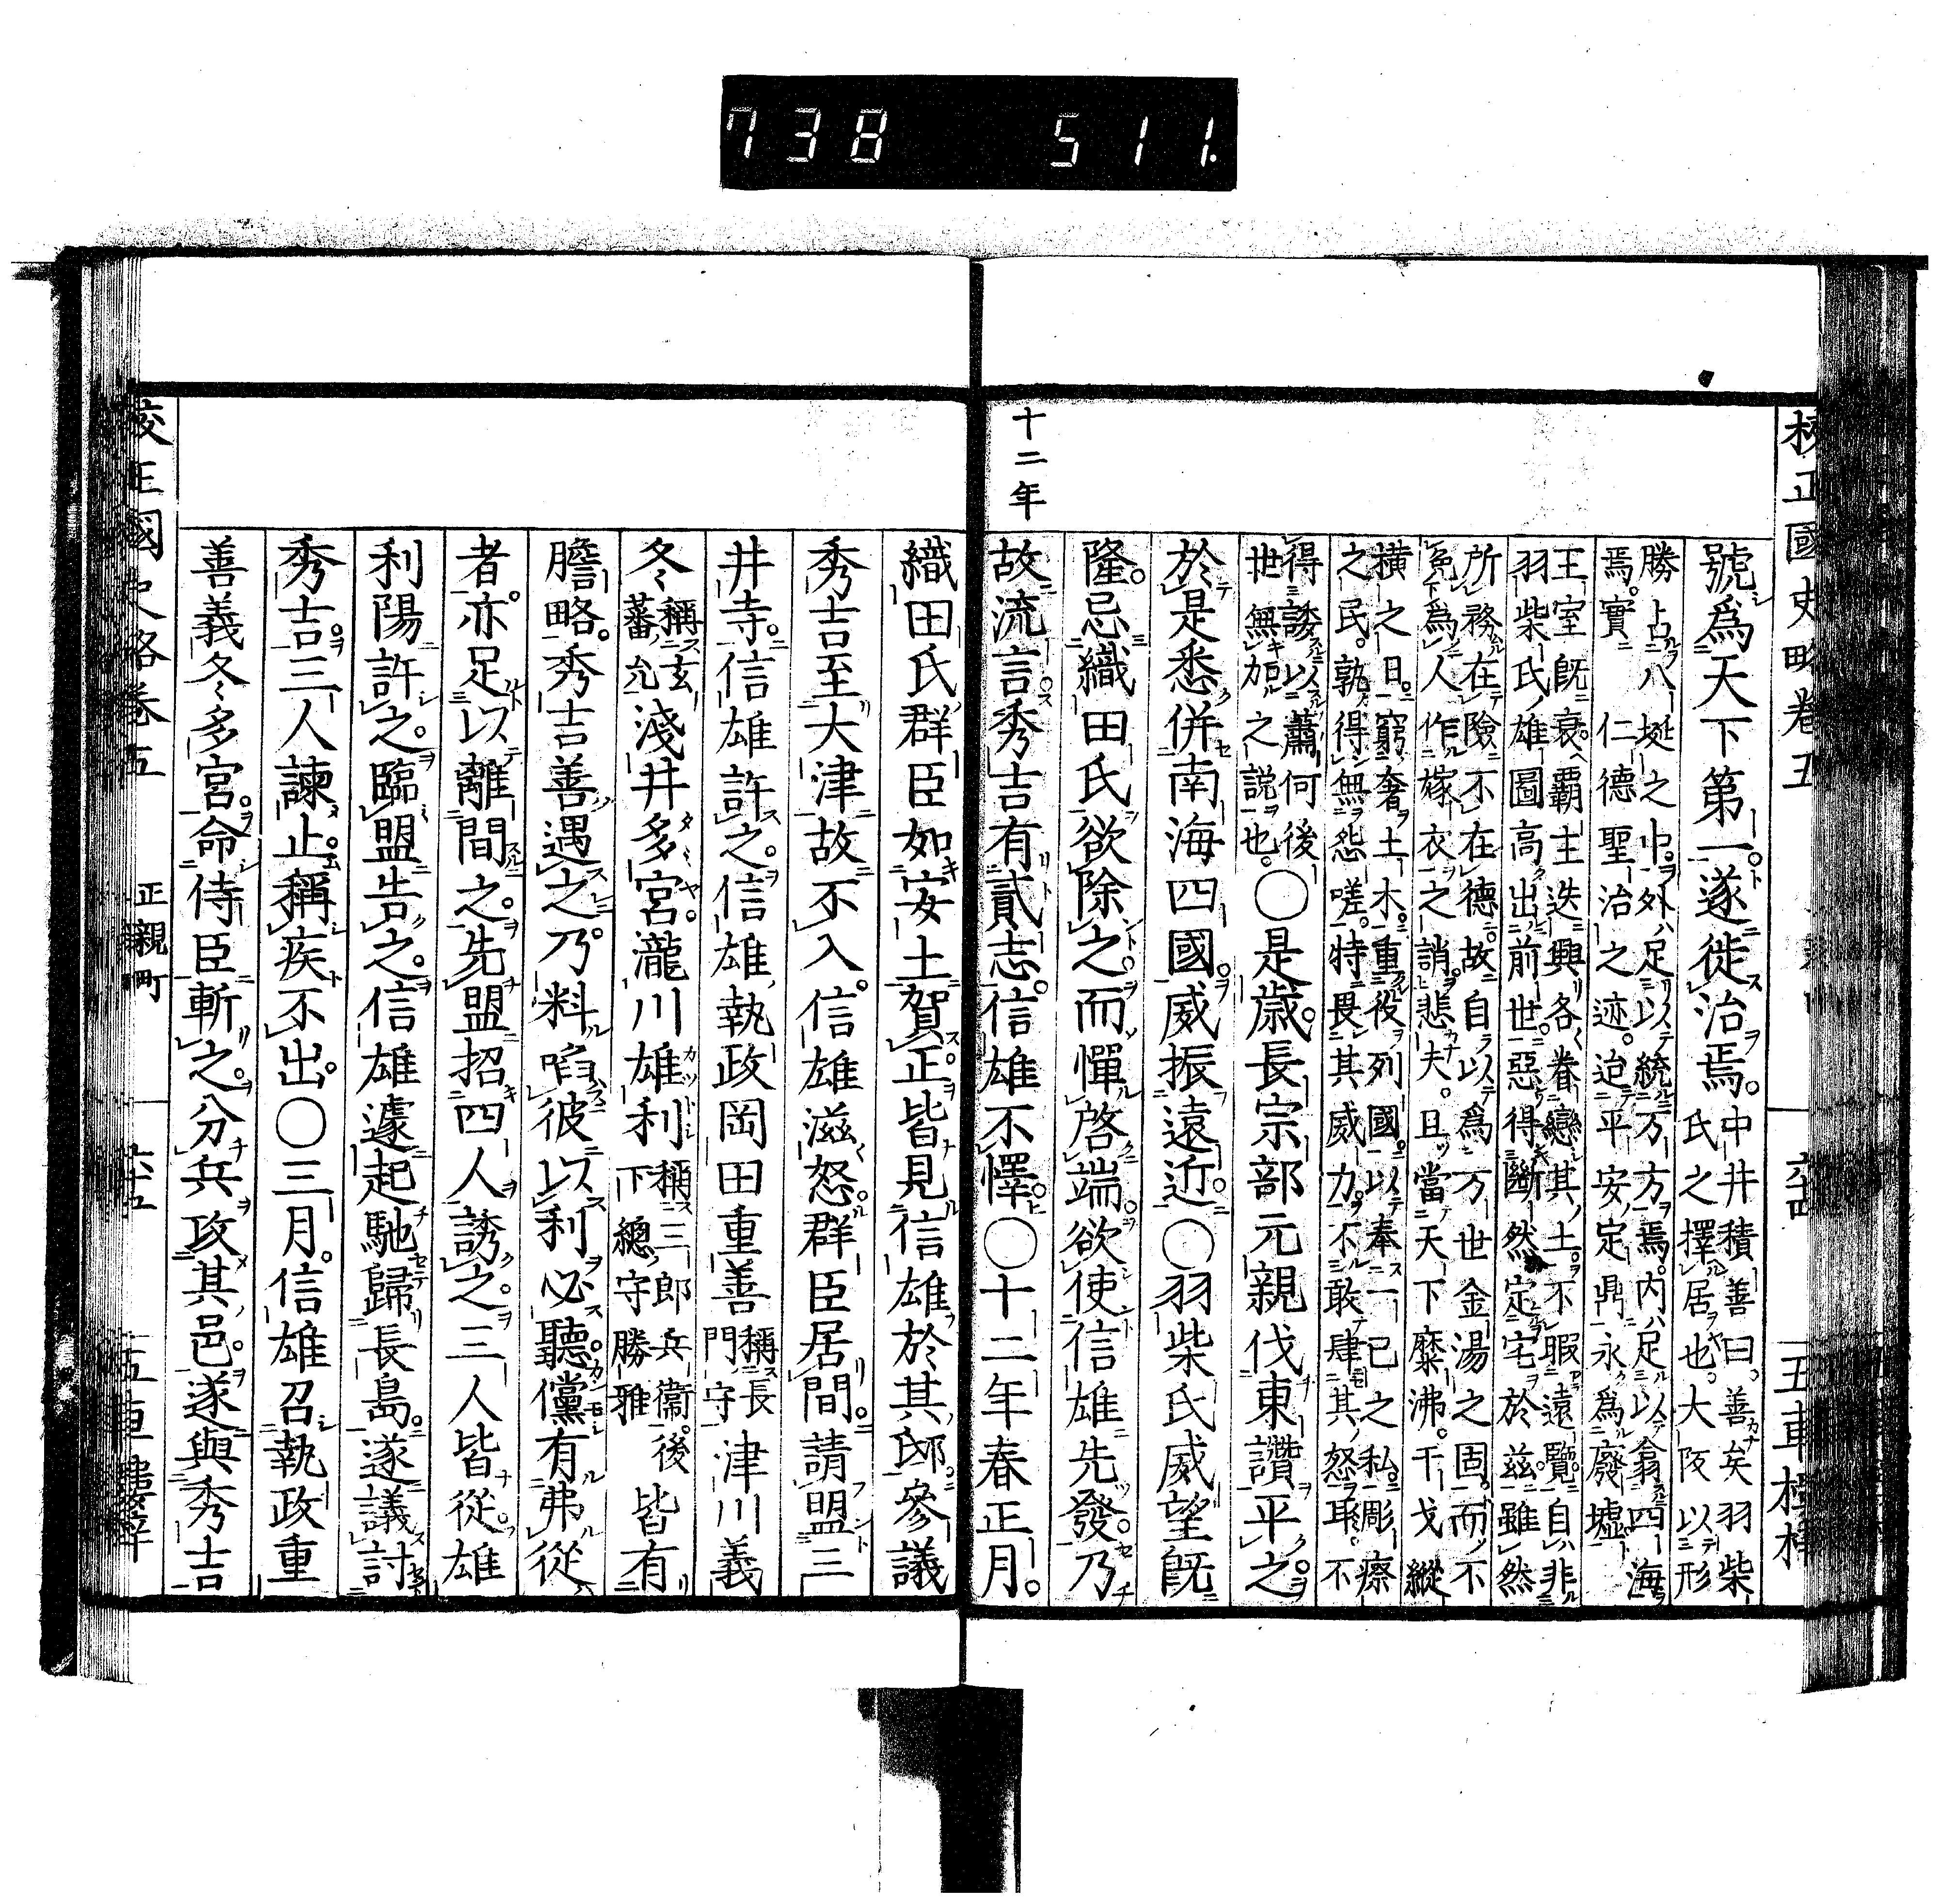 738 511.
校正國史略卷五
十二年
號爲天下第一。遂徙治焉。中井積善曰。善矣羽柴
氏之擇居也。大阪以形
勝占八埏之中。外足以統万方焉。內足以翕四海
焉。實仁德聖治之迹。迨平安定鼎永爲廢墟
王室旣衰。覇主迭興各眷戀其土。不暇遠覽。自非
羽柴氏雄圖高出前世。惡得斷然定宅於茲。雖然
所務在險不在德。故自以爲万世金湯之固。而不
免爲人作嫁衣之誚。悲夫。且當天下糜沸。干戈縱
橫之日。窮奢土木。重役列國。以奉一己之私。彫瘵
之民。孰得無怨嗟。特畏其威力。不敢肆其怒耳。不
得誘以蕭何後
世無加之説也。〇是歳。長宗部元親伐東讚平之。
於是悉併南海四國。威振遠近。〇羽柴氏威望旣
隆。忌織田氏欲除之。而憚啓端。欲使信雄先發。乃
故流言秀吉有貳志。信雄不懌。〇十二年春正月。
織田氏群臣如安土賀正。皆見信雄於其邸。參議
秀吉至大津。故不入。信雄滋怒。群臣居間。請盟三
井寺。信雄許之。信雄執政岡田重善稱長門守津川義
冬稱玄蕃允淺井多宮。瀧川雄利稱三郎兵衞。後下總守勝雅皆有
膽略。秀吉善遇之。乃料啗彼以利必聽。儻有弗從
者。亦足以離間之。先盟招四人誘之。三人皆從。雄
利陽許之。臨盟告之。信雄遽起馳歸長島。遂議討
秀吉。三人諫止。稱疾不出。〇三月。信雄召執政重
善義冬多宮。命侍臣斬之。分兵攻其邑。遂與秀吉
校正國史略卷五
正親町